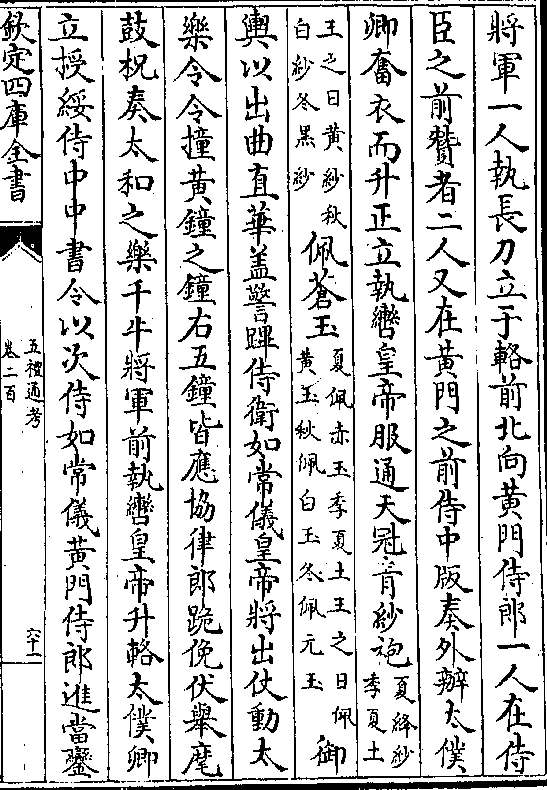 將軍一人執長刀立于輅前北向黃門侍郎一人在侍
臣之前贊者二人又在黃門之前侍中版奏外辦太僕
卿奮衣而升正立執轡皇帝服通天冠青紗袍夏絳紗季夏土
王之日黃紗秋白紗冬黑紗佩蒼玉夏佩赤玉季夏土王之日佩黃玉秋佩白玉冬佩元玉御
輿以出曲直華盖警蹕侍衛如常儀皇帝將出仗動太
樂令令撞黃鐘之鐘右五鐘皆應協律郎跪俛伏舉麾
鼓柷奏太和之樂千牛將軍前執轡皇帝升輅太僕卿
立授綏侍中中書令以次侍如常儀黃門侍郎進當鑾
欽定四庫全書
五禮通考
卷二百
六十一